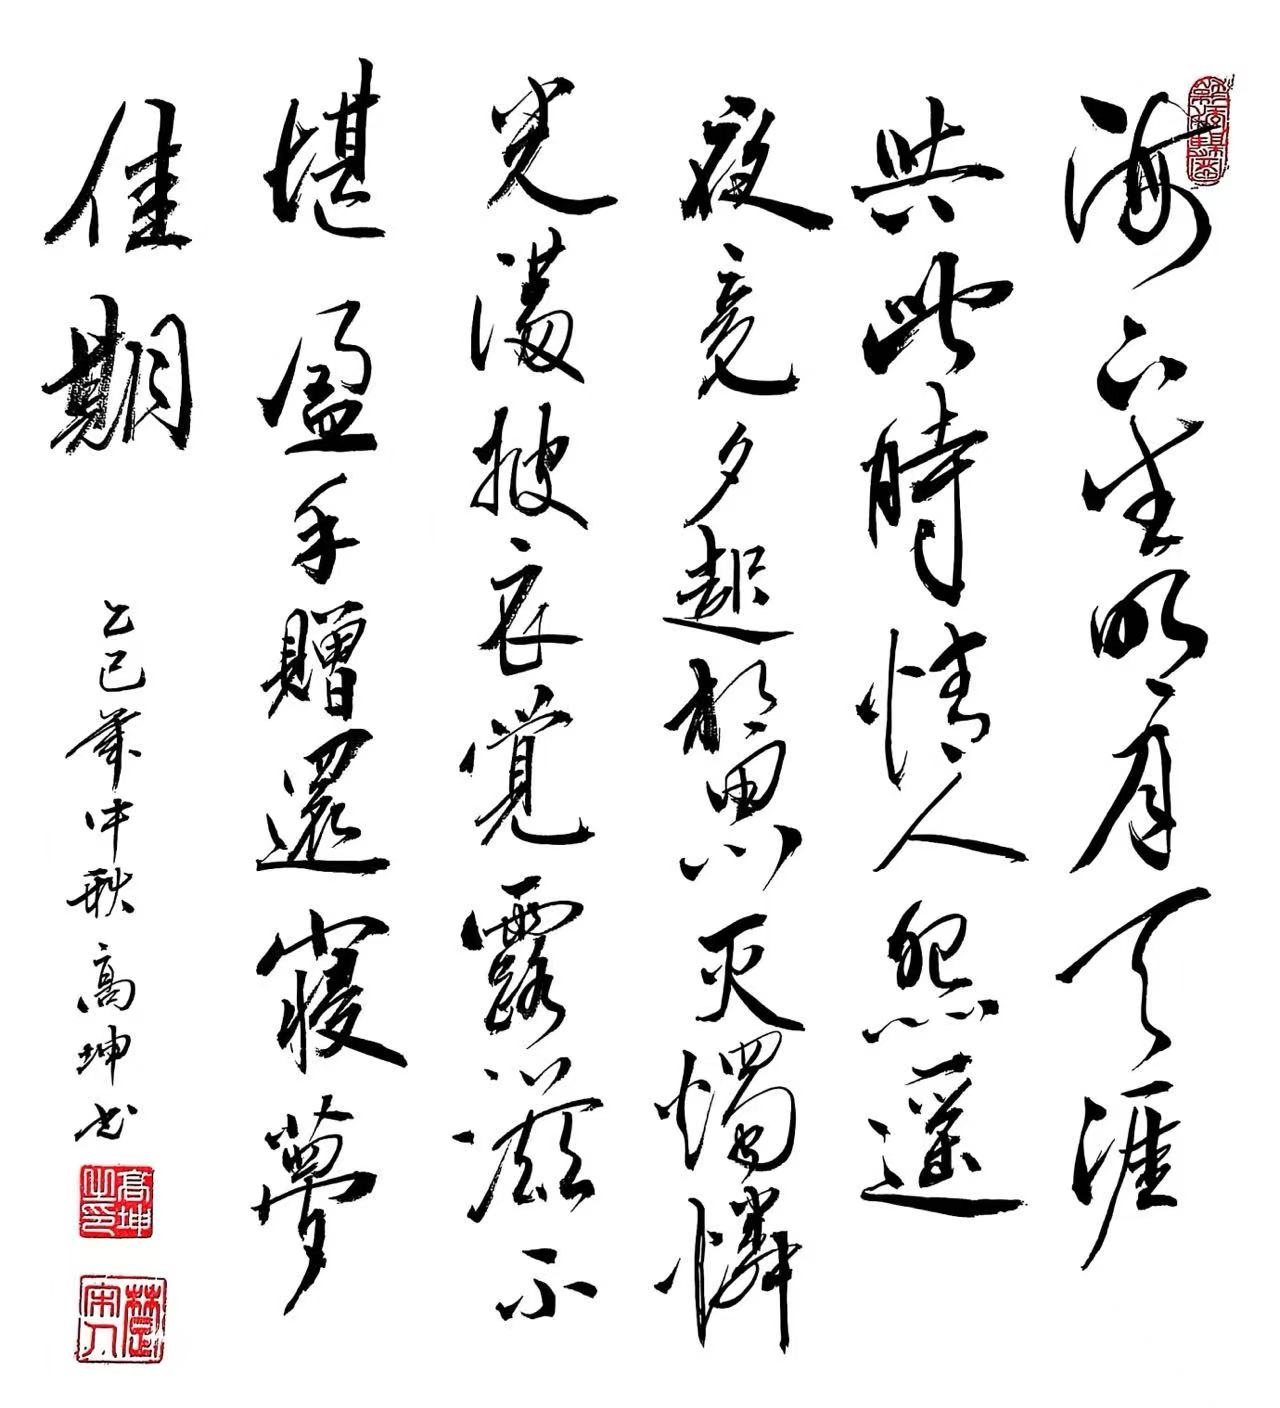 海上生明月天涯
共此時情人怨遥
夜竟夕起相思灭燭憐
光滿披衣覚露滋不
堪盈手贈還寢夢
佳期
乙巳年中秋高坤书
高坤之印